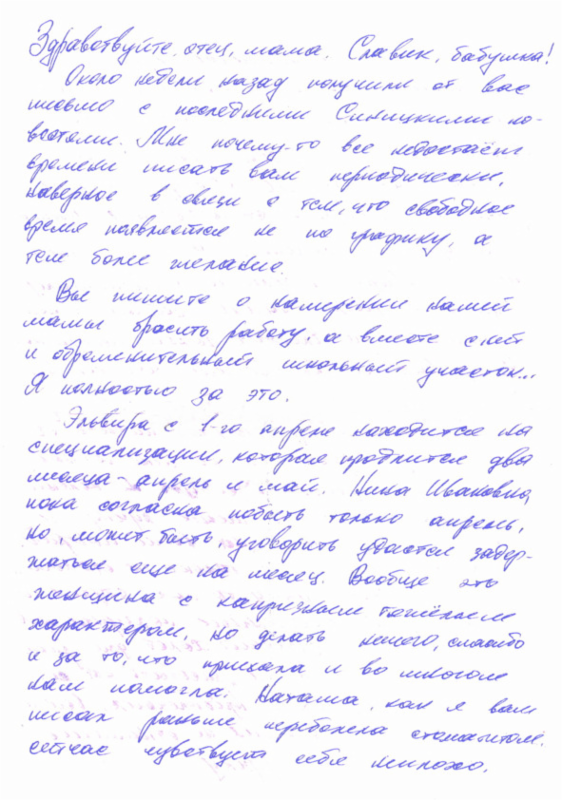 Здравствуйте, отец, мама, Славик, бабушка!
Около недели назад получили от вас
письмо с последними Синицкими но-
востями. Мне почему-то все недостаёт
времени писать вам периодически,
наверное в связи с тем, что свободное
время появляется не по графику, а
тем более желание.
Вы пишите о намерении нашей
мамы бросить работу, а вместе с ней
и обременительный школьный участок...
Я полностью за это.
Эльвира с 1-го апреля находится на
специализации, которая продлится два
месяца - апрель и май. Нина Ивановна,
пока согласна побыть только апрель,
но, может быть, уговорить удастся задер-
жаться еще на месяц. Вообще это
женщина с капризным тяжёлым
характером, но делать нечего, спасибо
и за то, что приехала и во многом
нам помогла. Наташа, как я вам
писал раньше переболела стоматитом.
сейчас чувствует себя неплохо.